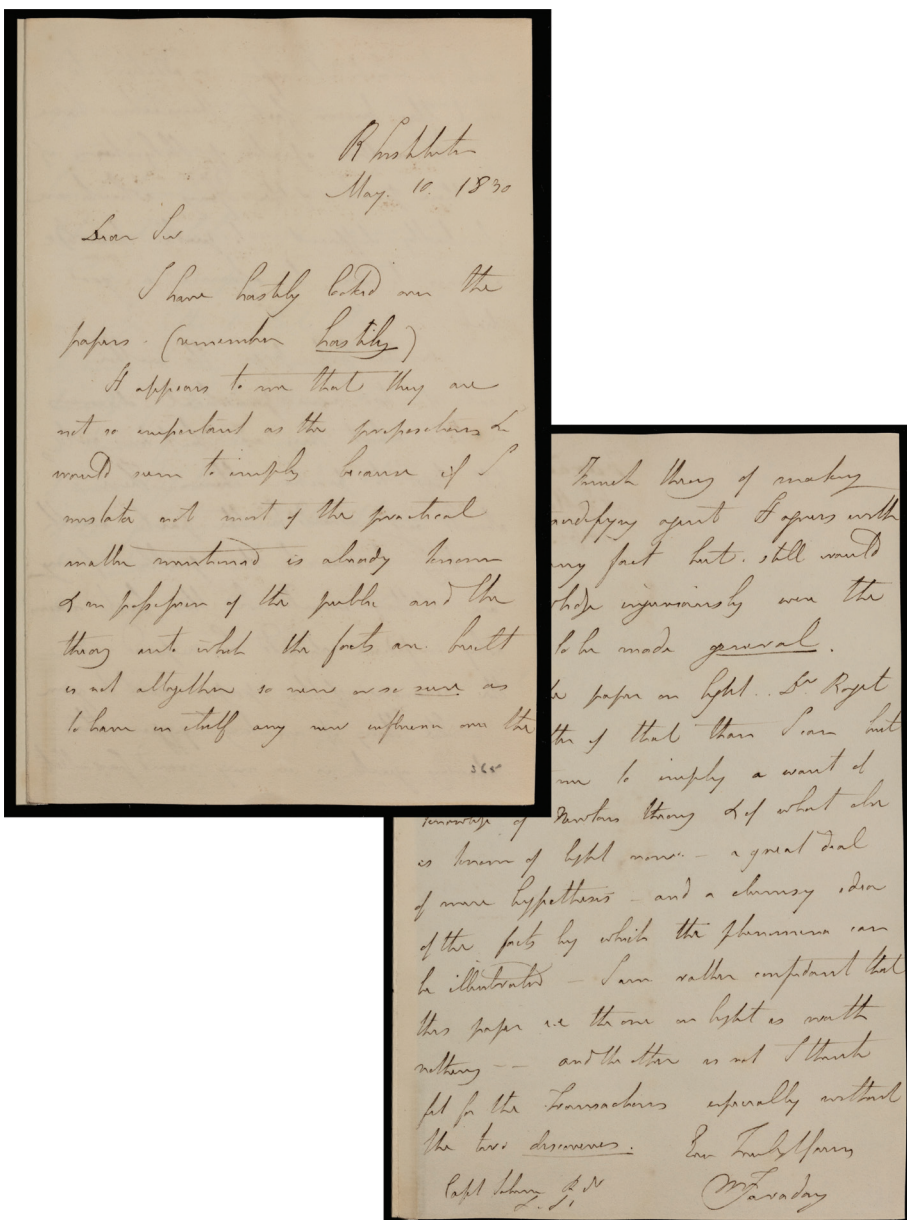 R Institution
May. 10. 1830
Dear Sir
I have hastily looked over the
papers. (remember hastily)
It appears to me that they are
not so important as the propositions &
would seem to imply because if I
mistake not most of the practical
matter mentioned is already known
& in possession of the public and the
theory into which the facts are built
is not altogether so new or so sure as
to have in itself any new influence over the
365
French theory of making
agent It agrees with
many fact but still would
injuriously were the
to be made general.
paper on light. Dr Roget
of that than I can but
me to imply a want of
knowledge of Newtons theory & of what else
is known of light now – a great deal
of mere hypothesis – and a clumsy idea
of the facts by which the phenomena can
be illustrated – I am rather confident that
this paper i.e the one on light is worth
nothing – – and the other is not I think
fit for the Transactions especially without
the two discoveries. Ever Truly Yours
Capt Sabine M Faraday